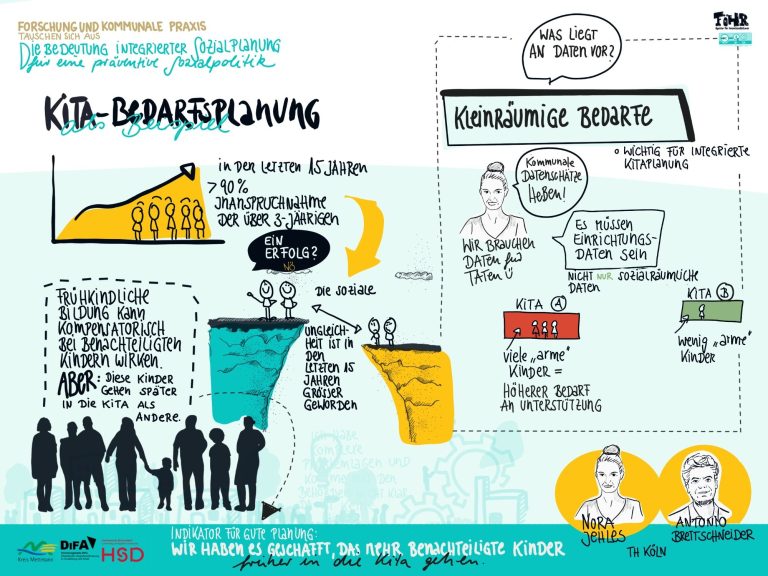 FORSCHUNG UND KOMMUNALE PRAXIS
TAUSCHEN SICH AUS
DIE BEDEUTUNG INTEGRIERTER SOZIALPLANUNG
für eine präventive Sozialpolitik
KITA-BEDARFSPLANUNG
als Beispiel
IN DEN LETZTEN 15 JAHREN
> 90%
INANSPRUCHNAHME
DER ÜBER 3-JÄHRIGEN
EIN
ERFOLG?
NÖ
FRÜHKINDLICHE
BILDUNG KANN
KOMPENSATORISCH
BEI BENACHTEILIGTEN
KINDERN WIRKEN.
ABER: DIESE KINDER
GEHEN SPÄTER
IN DIE KITA ALS
ANDERE.
DIE SOZIALE
UNGLEICH-
HEIT IST IN
DEN
LETZTEN 15
JAHREN
GRÖSSER
GEWORDEN
WAS LIEGT
AN DATEN VOR?
FÖHR
KLEINRÄUMIGE BEDARFE
WICHTIG FÜR INTEGRIERTE
KITAPLANUNG
KOMMUNALE
DATENSCHÄTZE
HEBEN!
WIR BRAUCHEN
DATEN für
TATEN
ES MÜSSEN
EINRICHTUNGS-
DATEN SEIN
NICHT NUR SOZIALRÄUMLICHE
DATEN
KITA A
viele „arme"
KINDER =
HÖHERER BEDARF
AN UNTERSTÜTZUNG
KITA B
wenig „arme"
KINDER
ICH HABE
KOMPLEXE
UND
NORA
JEHLES
ANTONIO
BRETTSCHNEIDER
TH KÖLN
Kreis Mettmann
DIFA
HSD
INDIKATOR FÜR GUTE PLANUNG:
WIR HABEN ES GESCHAFFT, DAS MEHR BENACHTEILIGTE KINDER
früher in die Kita gehen.